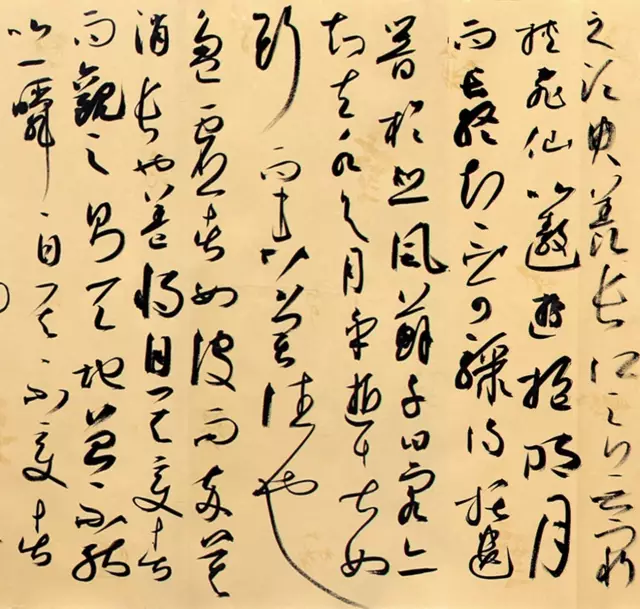 之須臾羨長江之無窮
挾飛仙以遨遊抱明月
而長終知不可驟得托遺
響於悲風蘇子曰客亦
知夫水與月乎逝者如
斯而未嘗往也
盈虛者如彼而卒莫
消長也蓋將自其變者
而觀之則天地曾不能
以一瞬自其不變者